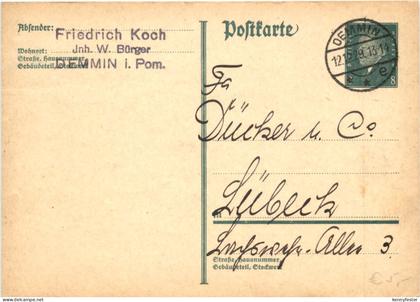 Absender:
Friedrich Koch
Jnh. W. Bürger
Wohnort:
Straße, Hausnummer,
Gebäudeteil, Stockwerk
DEMMIN i. Pom.
Postkarte
DEMMIN
e
8
Fa
Dücker u. Co.
Lübeck
Allee 3.
Straße, Hausnummer,
Gebäudeteil, Stockwerk